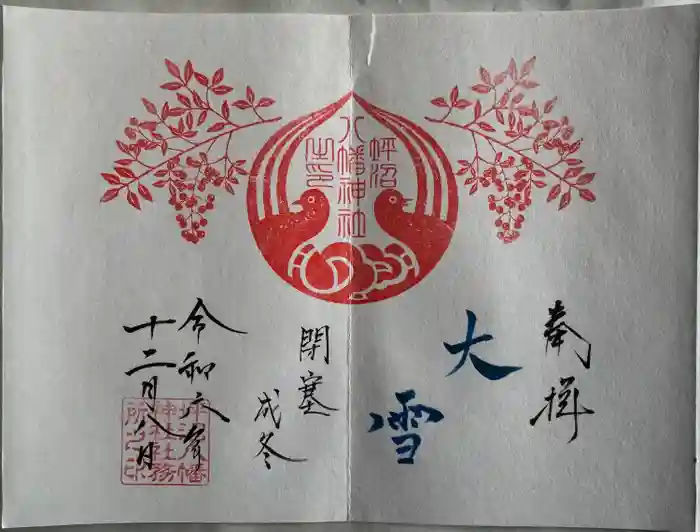 奉拝
大雪
閉塞
成冬
令和六年
十二月八日
坪沼
八幡神社
之印
坪沼八幡
神社社務
所之印